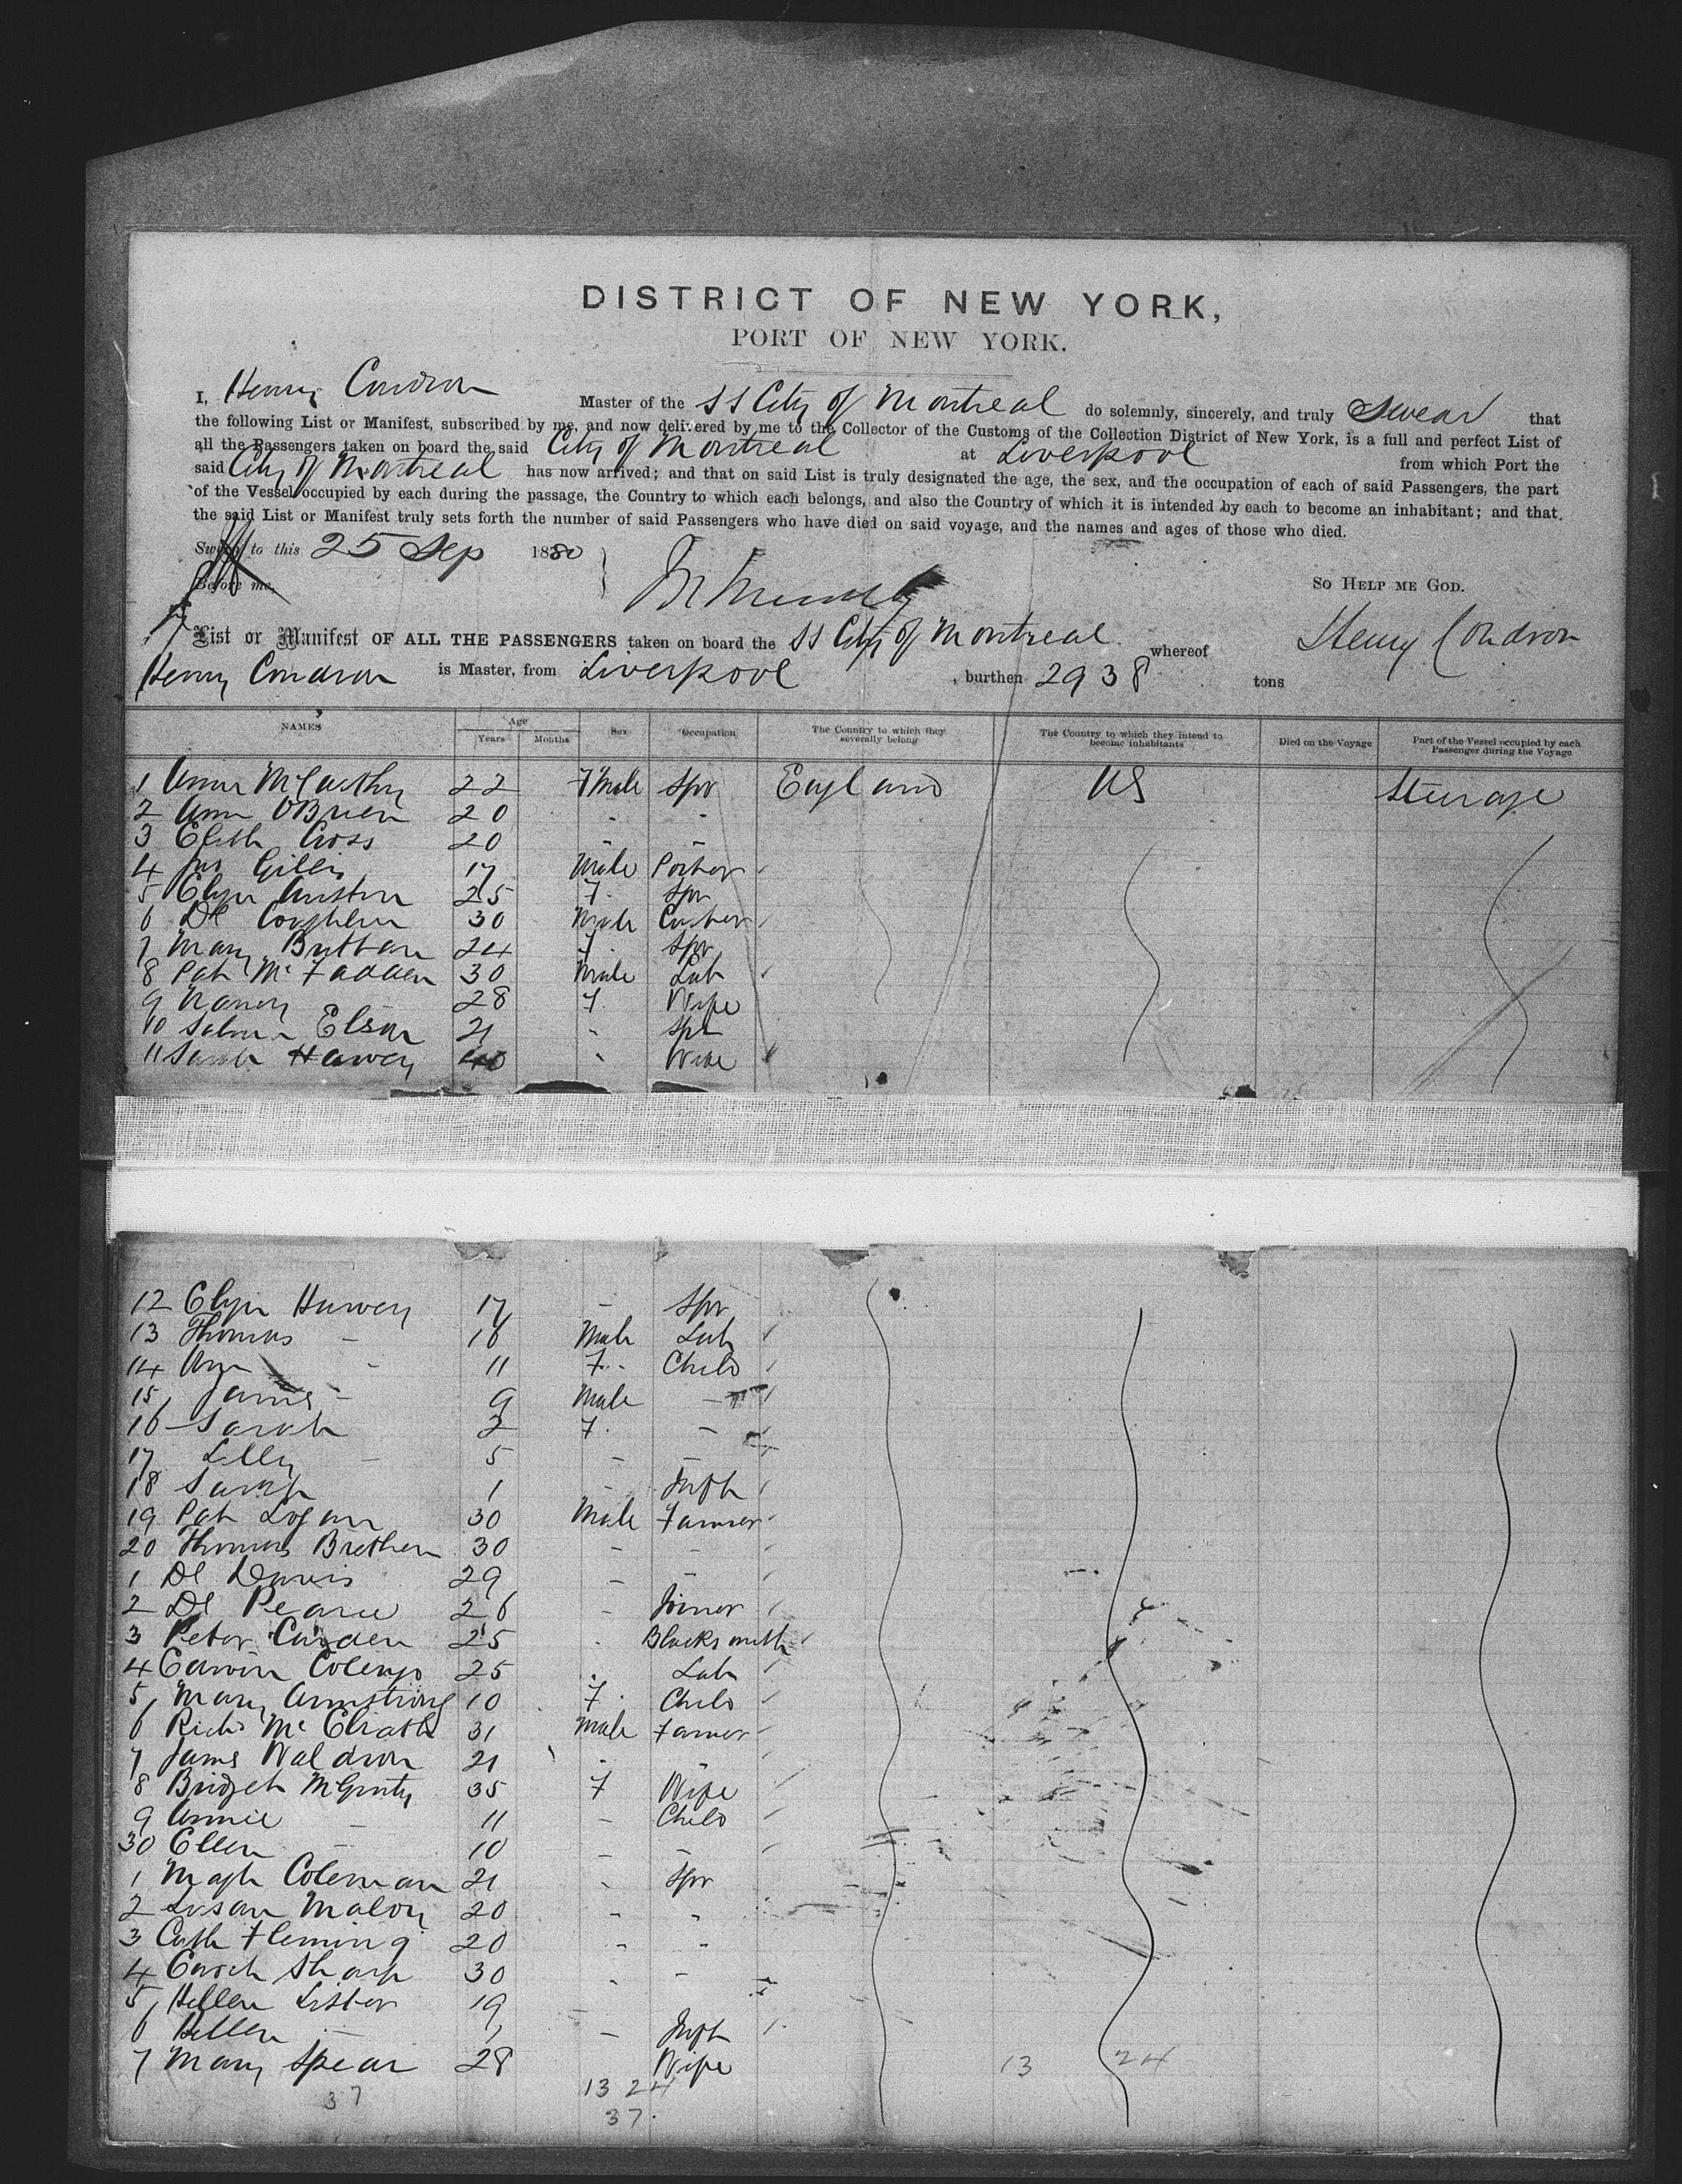 DISTRICT OF NEW YORK,
PORT OF NEW YORK.
I, Henry Condron Master of the SS City of Montreal do solemnly, sincerely, and truly Swear that
the following List or Manifest, subscribed by me, and now delivered by me to the Collector of the Customs of the Collection District of New York, is a full and perfect List of
all the Passengers taken on board the said City of Montreal at Liverpool from which Port the
said City of Montreal has now arrived; and that on said List is truly designated the age, the sex, and the occupation of each of said Passengers, the part
of the Vessel occupied by each during the passage, the Country to which each belongs, and also the Country of which it is intended by each to become an inhabitant; and that
the said List or Manifest truly sets forth the number of said Passengers who have died on said voyage, and the names and ages of those who died.
Sworn to this 25 Sep 1880
Before me, So Help me God.
List or Manifest OF ALL THE PASSENGERS taken on board the SS City of Montreal whereof Henry Condron
Henry Condron is Master, from Liverpool, burthen 2938 tons
NAMES Age Years Months Sex Occupation The Country to which they severally belong The Country to which they intend to become inhabitants Died on the Voyage Part of the Vessel occupied by each Passenger during the Voyage
1 Anna McCarthy 22 Fmale Spr England US Steerage
2 Ann OBrien 20 - -
3 Elisth Cross 20 - -
4 Jas Gillis 17 Male Porter
5 Eliza Austin 25 F. Spr
6 Dl Coughlin 30 Male
7 Mary Button 24 F. Spr
8 Pat McFadden 30 Male Lab
9 Nancy 28 F. Wife
10 Elson 21 - Spr
11 Sarah Harvey 40 - Wife
12 Eliza Harvey 17 - Spr
13 Thomas - 16 Male Lab
14 Ann - 11 F. Child
15 James - 9 Male -
16 Sarah 2 F. -
17 Lilly - 5 - -
18 Sarah 1 - Inft
19 Pat Logan 30 Male Farmer
20 Thomas Brethern 30 - -
1 Dl Davis 29 - -
2 Dl Pearce 26 - Joiner
3 Peter Carden 25 - Blacksmith
4 Edwin 25 - Lab
5 Mary Armstrong 10 F. Child
6 Richd McElrath 31 Male Farmer
7 James Waldron 21 - -
8 Bridget McGinty 35 F Wife
9 Annie - 11 - Child
30 Ellen - 10 - -
1 Magt Coleman 21 - Spr
2 Susan Maloy 20 - -
3 Cath Fleming 20 - -
4 Sharp 30 - -
5 Hellen Lister 19 -
6 Hellen - 1 - Inft
7 Mary Spear 28 Wife 13 24
37 13 24
37.